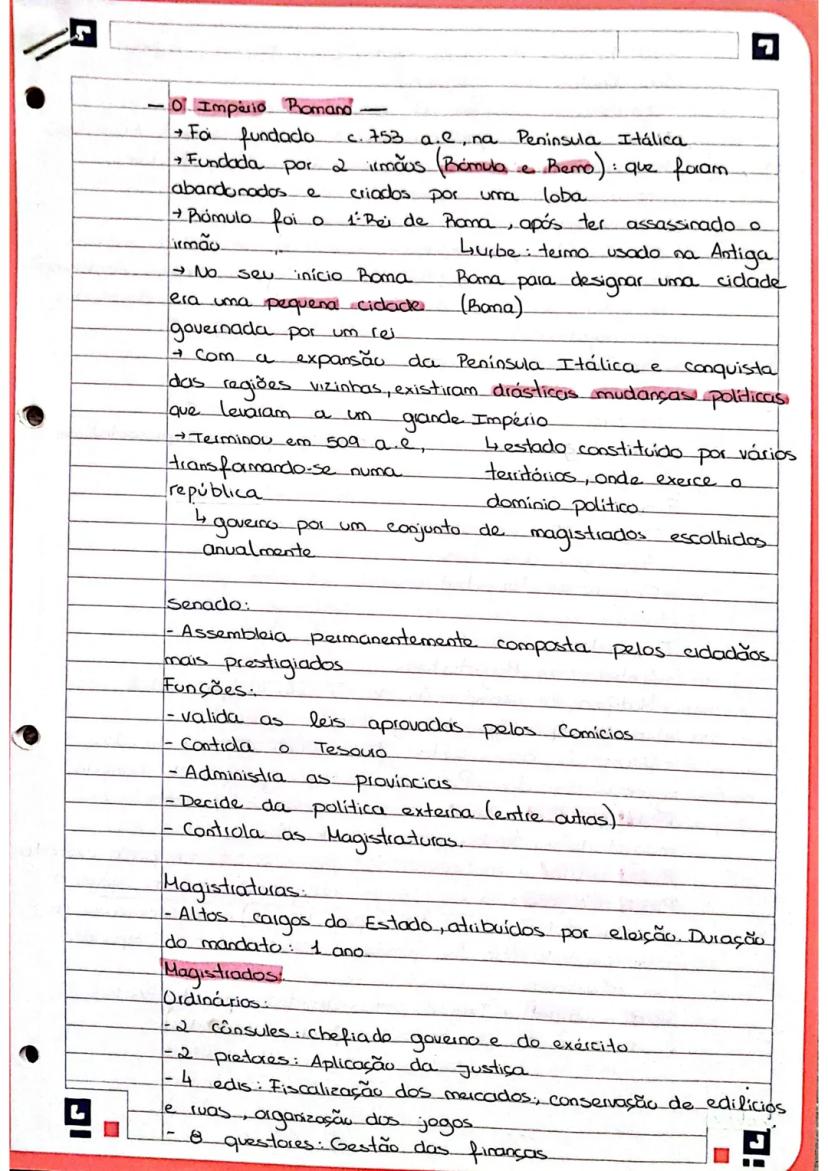 — O Império Romano —
→ Foi fundado c. 753 a.C, na Península Itálica
→ Fundada por 2 irmãos (Rómulo e Remo): que foram
abandonados e criados por uma loba
→ Rómulo foi o 1º Rei de Roma, após ter assassinado o
irmão
↳ urbe: termo usado na Antiga
→ No seu início Roma
Roma para designar uma cidade
era uma pequena cidade
(Roma)
governada por um rei
→ Com a expansão da Península Itálica e conquista
das regiões vizinhas, existiram drásticas mudanças políticas
que levaram a um grande Império
→ Terminou em 509 a.C,
↳ estado constituído por vários
transformando-se numa
territórios, onde exerce o
república
domínio político.
↳ governo por um conjunto de magistrados escolhidos
anualmente
Senado:
- Assembleia permanentemente composta pelos cidadãos
mais prestigiados
Funções:
- valida as leis aprovadas pelos Comícios
- Controla o Tesouro
- Administra as províncias
- Decide da política externa (entre outras)
- Controla as Magistraturas.
Magistraturas:
- Altos cargos do Estado, atribuídos por eleição. Duração
do mandato: 1 ano.
Magistrados:
Ordinários:
- 2 cônsules: Chefiado governo e do exército
- 2 pretores: Aplicação da justiça
- 4 edis: Fiscalização dos mercados; conservação de edilícios
e ruas, organização dos jogos
- 8 questores: Gestão das finanças